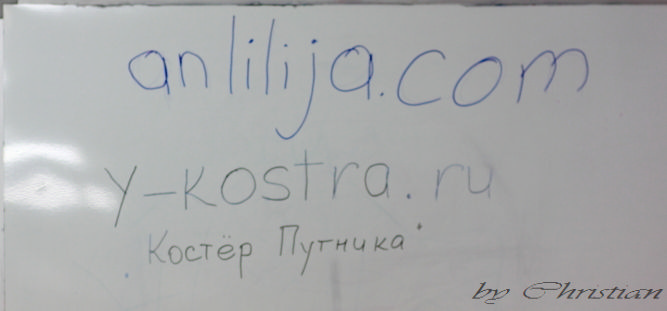 anlilija.com
y-kostra.ru
Костёр Путника
by Christian